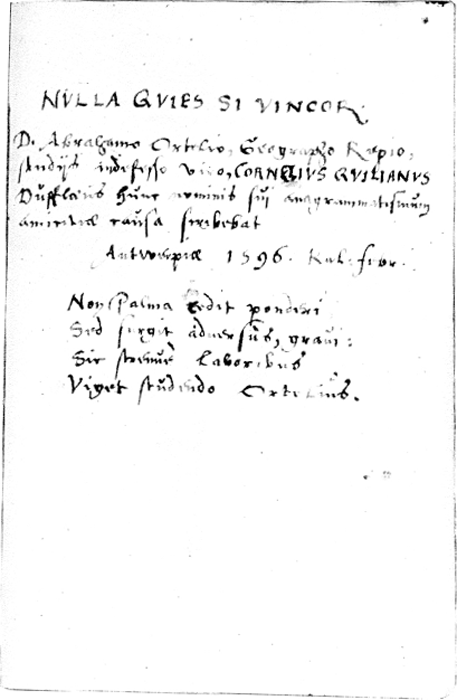 NVLLA QVIES SI VINCOR
D. Abrahamo Ortelio, Geographo Regio,
studijs indefesso viro, CORNELIVS QVILIANVS
Dufflæus hunc nominis sui anagrammatismum
amicitiæ causa scribebat
Antwerpiæ 1596. Kal. febr.
Non palma cedit ponderi
Sed surgit adversus, gravi:
Sic strenuè laboribus
Viget studendo Ortelius.